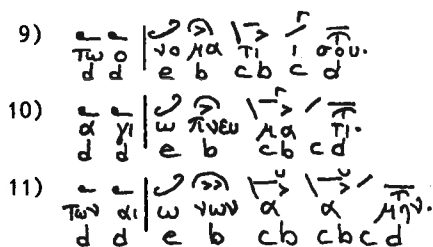 9) τω ο νο μα τι ι σου.
d d e b cb c d
10) α γι ω πνευ μα τι.
d d e b cb c d
11) των αι ω νων α α μην.
d d e b cb cb c d